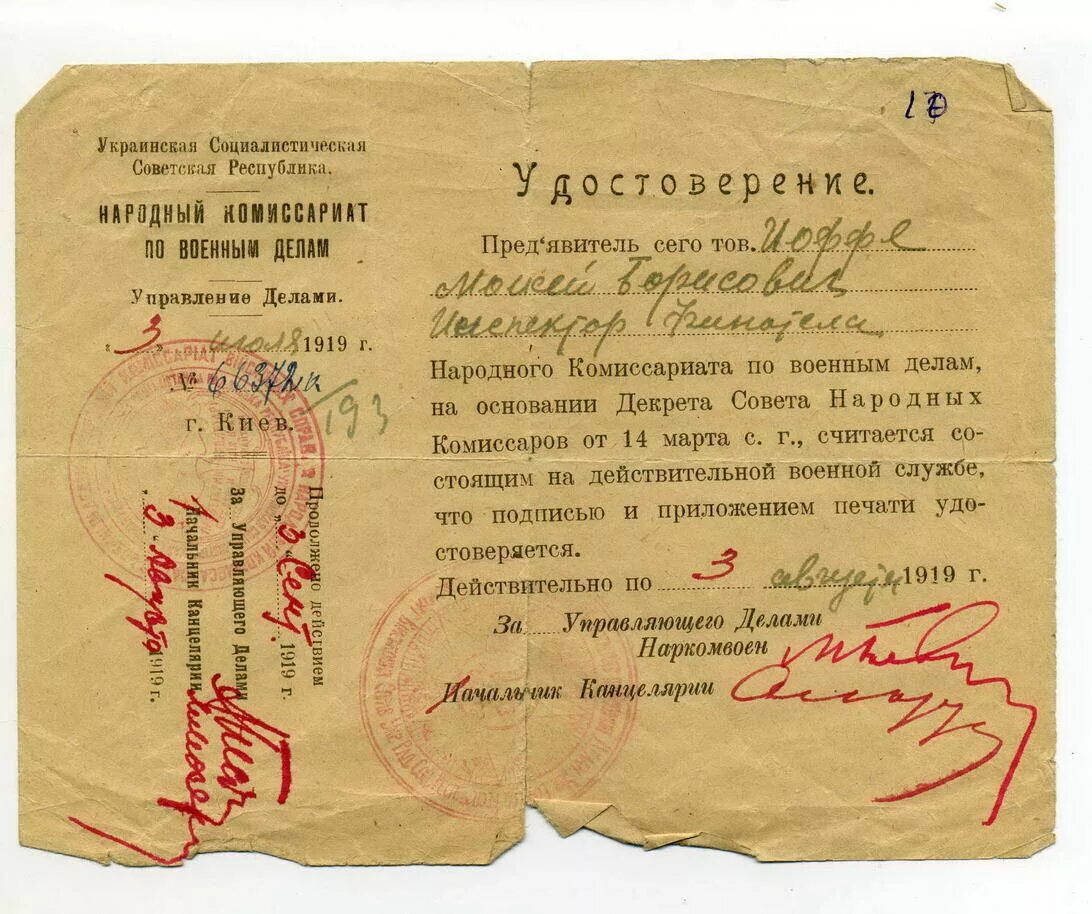 Украинская Социалистическая
Советская Республика.
НАРОДНЫЙ КОМИССАРИАТ
ПО ВОЕННЫМ ДЕЛАМ
Управление Делами.
„3“ июля 1919 г.
№ 66372/к
193
г. Киев.
Продолжено действием
до „3“ Сент. 1919 г.
За Управляющего Делами
Начальник Канцелярии
„3“ Августа 1919 г.
Удостоверение.
Пред‘явитель сего тов. Иоффе
Моисей Борисович
Инспектор Финотдела
Народного Комиссариата по военным делам,
на основании Декрета Совета Народных
Комиссаров от 14 марта с. г., считается со-
стоящим на действительной военной службе,
что подписью и приложением печати удо-
стоверяется.
Действительно по 3 августа 1919 г.
За Управляющего Делами
Наркомвоен
Начальник Канцелярии